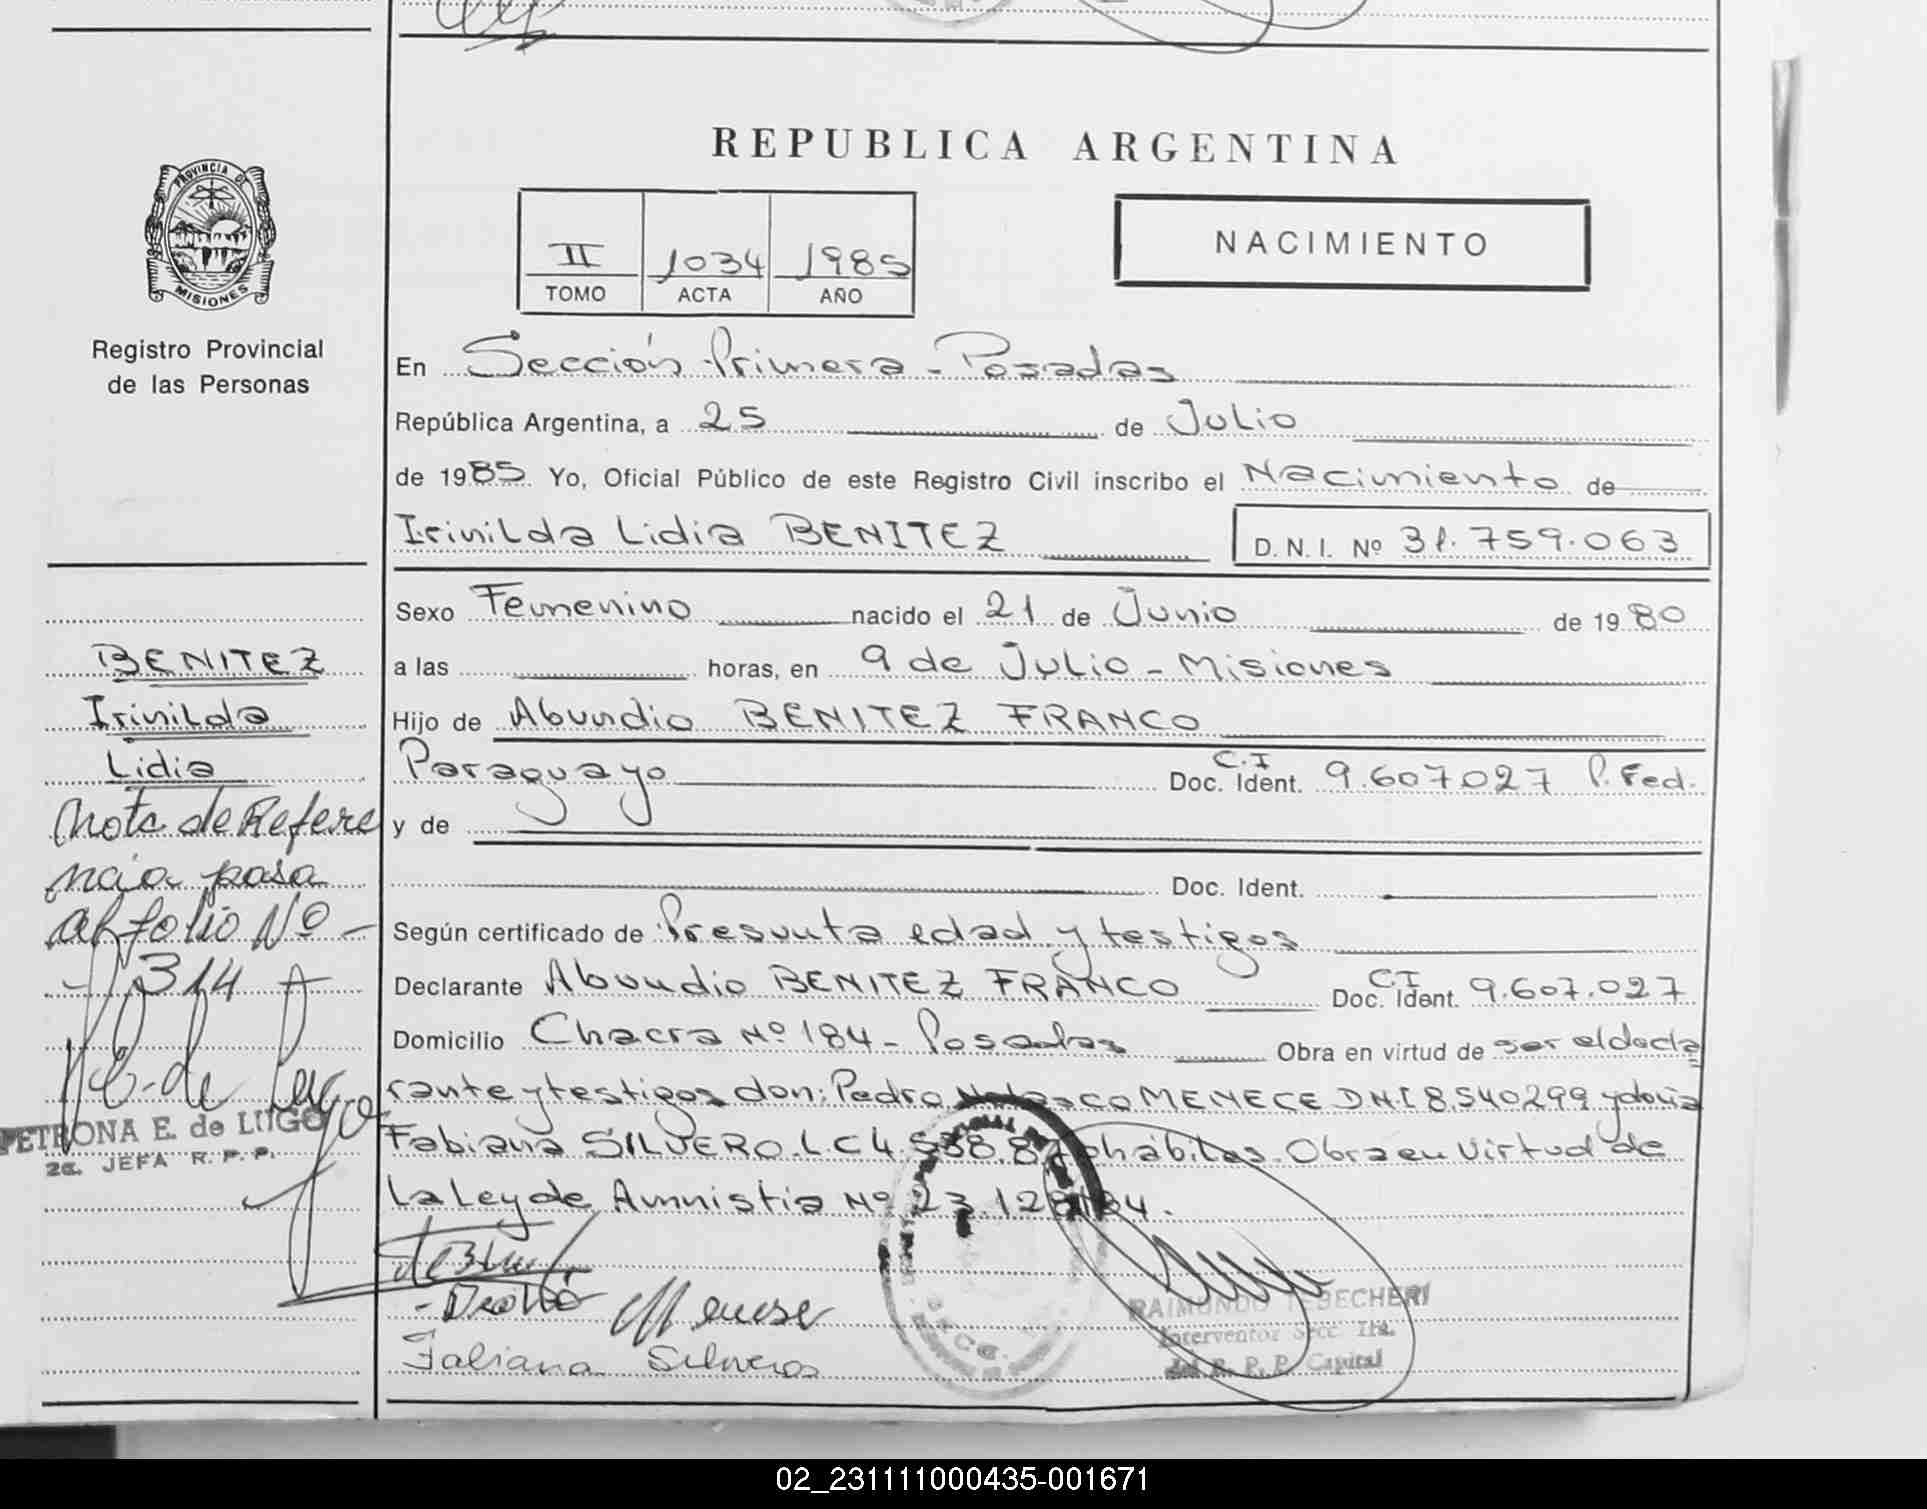 REPUBLICA ARGENTINA
PROVINCIA DE
MISIONES
Registro Provincial
de las Personas
II 1034 1985
TOMO ACTA AÑO
NACIMIENTO
En Sección Primera - Posadas
República Argentina, a 25 de Julio
de 1985. Yo, Oficial Público de este Registro Civil inscribo el Nacimiento de
Irinilda Lidia BENITEZ D. N. I. Nº 31.759.063
Sexo Femenino nacido el 21 de Junio de 1980
a las horas, en 9 de Julio - Misiones
Hijo de Abundio BENITEZ FRANCO
Paraguayo C.I Doc. Ident. 9.607027 P. Fed.
y de
Doc. Ident.
Según certificado de Presunta edad y testigos
Declarante Abundio BENITEZ FRANCO C.I Doc. Ident. 9.607.027
Domicilio Chacra Nº 184 - Posadas Obra en virtud de ser el decla
rante y testigos don: Pedro MENECE DNI 8.540299 y doña
Fabiana SILVERO. L C hábiles. Obra en Virtud de
la Ley de Amnistia Nº 23.128/84.
BENITEZ
Irinilda
Lidia
Nota de Refere
ncia pasa
al folio Nº -
- 314 -
PETRONA E. de LUGO
2a. JEFA R. P. P.
Menese
Fabiana Silveros
RAIMUNDO TEBECHERI
Interventor Secc. 1ra.
del R. P. P. Capital
02_231111000435-001671